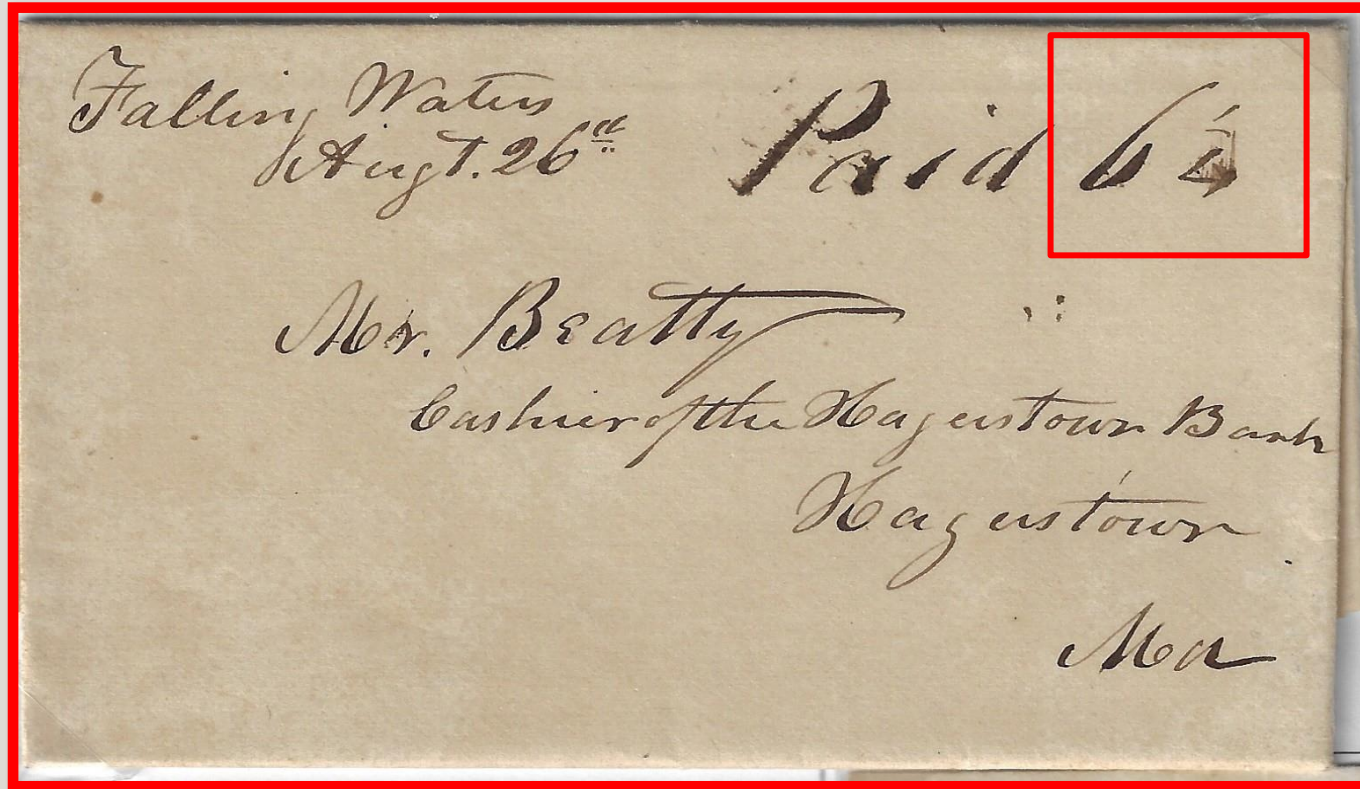 Falling Waters
Augt. 26th
Paid 6¼
Mr. Beatty
Cashier of the Hagerstown Bank
Hagerstown
Md